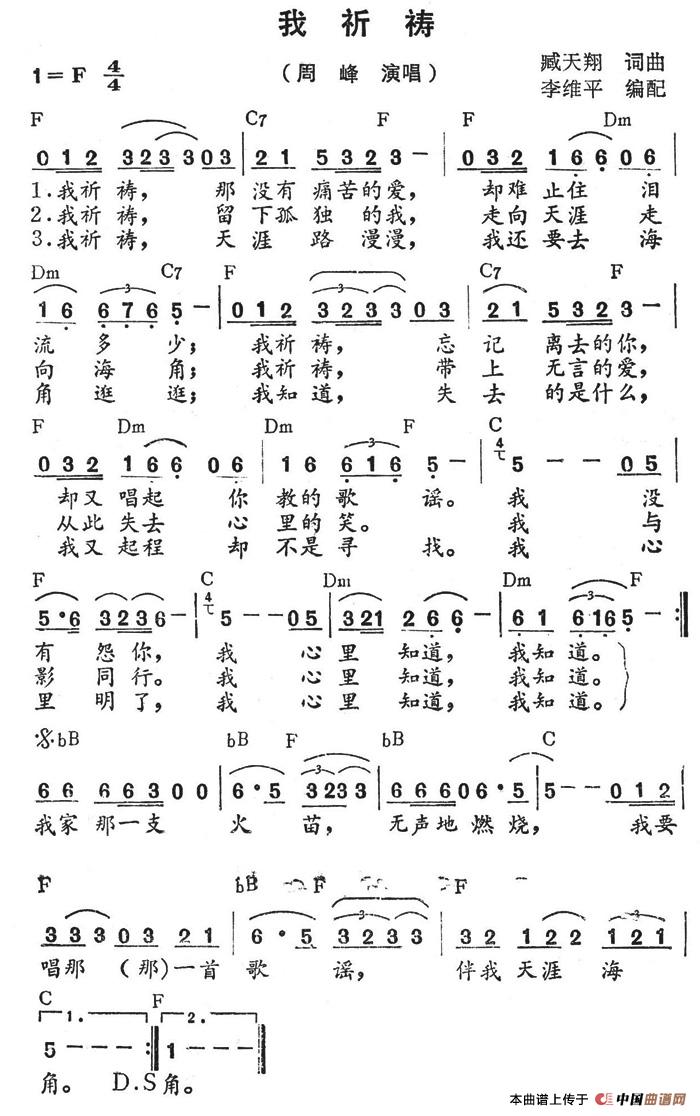 我祈祷
1=F 4/4 （周 峰 演唱） 臧天翔 词曲
李维平 编配
F C7 F F Dm
0 1 2 3 2 3 3 0 3 | 2 1 5 3 2 3 - | 0 3 2 1 6 6 0 6
1.我祈祷， 那没有痛苦的爱， 却难止住 泪
2.我祈祷， 留下孤独的我， 走向天涯 走
3.我祈祷， 天涯路漫漫， 我还要去 海
Dm C7 F C7 F
1 6 6 7 6 5 - | 0 1 2 3 2 3 3 0 3 | 2 1 5 3 2 3 - |
流多少； 我祈祷， 忘记离去的你，
向海角； 我祈祷， 带上无言的爱，
角逛逛； 我知道， 失去的是什么，
F Dm Dm F C
0 3 2 1 6 6 0 6 | 1 6 6 1 6 5 - | 5 - - 0 5
却又唱起 你教的歌谣。 我 没
从此失去 心里的笑。 我 与
我又起程 却不是寻找。 我 心
F C Dm Dm F
5·6 3 2 3 6 - | 5 - - 0 5 | 3 2 1 2 6 6 - | 6 1 6 1 6 5 - :|
有怨你， 我 心里知道， 我知道。
影同行。 我 心里知道， 我知道。
里明了， 我 心里知道， 我知道。
bB bB F bB C
6 6 6 6 3 0 0 | 6·5 3 2 3 3 | 6 6 6 0 6·5 | 5 - - 0 1 2
我家那一支 火苗， 无声地燃烧， 我要
F bB F F
3 3 3 0 3 2 1 | 6·5 3 2 3 3 | 3 2 1 2 2 1 2 1
唱那（那）一首 歌谣， 伴我天涯海
C F
1. 2.
5 - - :| 1 - - |
角。 D.S 角。
本曲谱上传于 中国曲谱网